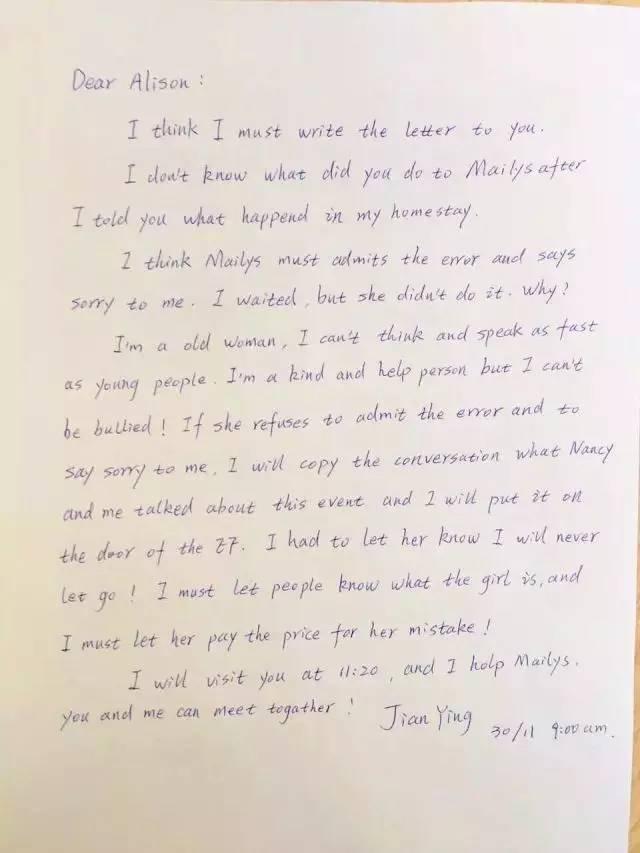 Dear Alison:
I think I must write the letter to you.
I don't know what did you do to Mailys after
I told you what happend in my homestay.
I think Mailys must admits the error and says
sorry to me. I waited, but she didn't do it. Why?
I'm a old woman, I can't think and speak as fast
as young people. I'm a kind and help person but I can't
be bullied! If she refuses to admit the error and to
say sorry to me, I will copy the conversation what Nancy
and me talked about this event and I will put it on
the door of the 27. I had to let her know I will never
let go! I must let people know what the girl is, and
I must let her pay the price for her mistake!
I will visit you at 11:20, and I holp Mailys.
you and me can meet togather! Jian Ying
30/11 9:00 am.